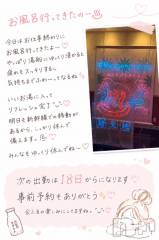 お風呂行ってきたの〜♨
今日はお仕事終わりに
お風呂行ってきたよ〜
やっぱり湯船にゆっくり浸かると
疲れもスッキリするし
気持ちまでふわ〜ってなるね♡
いいお湯に入って
リフレッシュ完了♡
明日も新幹線での移動が
あるから、しっかり休んで
備えます。
みんなもゆっくり休んでね〜♡
次の出勤は18日からになります♡
事前予約もありがとう
会えるの楽しみにしてますね。